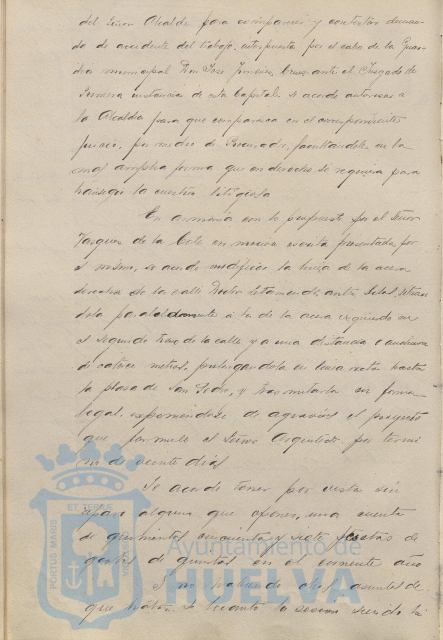 del Señor Alcalde para comparecer y contestar deman-
da de accidente del trabajo, interpuesta por el cabo de la Guar-
dia municipal Don José Jiménez Cruz, ante el Juzgado de
Primera instancia de esta Capital, se acordó autorizar a
la Alcaldía para que comparezca en el correspondiente
juicio, por medio de Procurador, facultándole en la
más amplia forma que en derecho se requiera para
transigir la cuestión litigiosa
En armonía con lo propuesto por el Señor
Vazquez de la Corte en moción escrita presentada por
sí mismo, se acordó modificar la línea de la acera
derecha de la calle Doctor Letamendi, antes Silos, situan
dola paralelamente a la de la acera izquierda en
el segundo trozo de la calle y a una distancia o anchura
de catorce metros, prolongándola en línea recta hasta
la plaza de San Pedro, y tramitarla en forma
legal, exponiéndose de agravios el proyecto
que formule el Señor Arquitecto por térmi
no de veinte días
Se acordó tener por vista sin
reparo alguno que oponer, una cuenta
de quinientas cincuenta y siete pesetas de
gastos de quintas en el corriente año
Y no habiendo otros asuntos de
que tratar se levantó la sesión siendo la
PORTUS MARIS
ET TERRAE
CUSTODIA
Ayuntamiento de
HUELVA